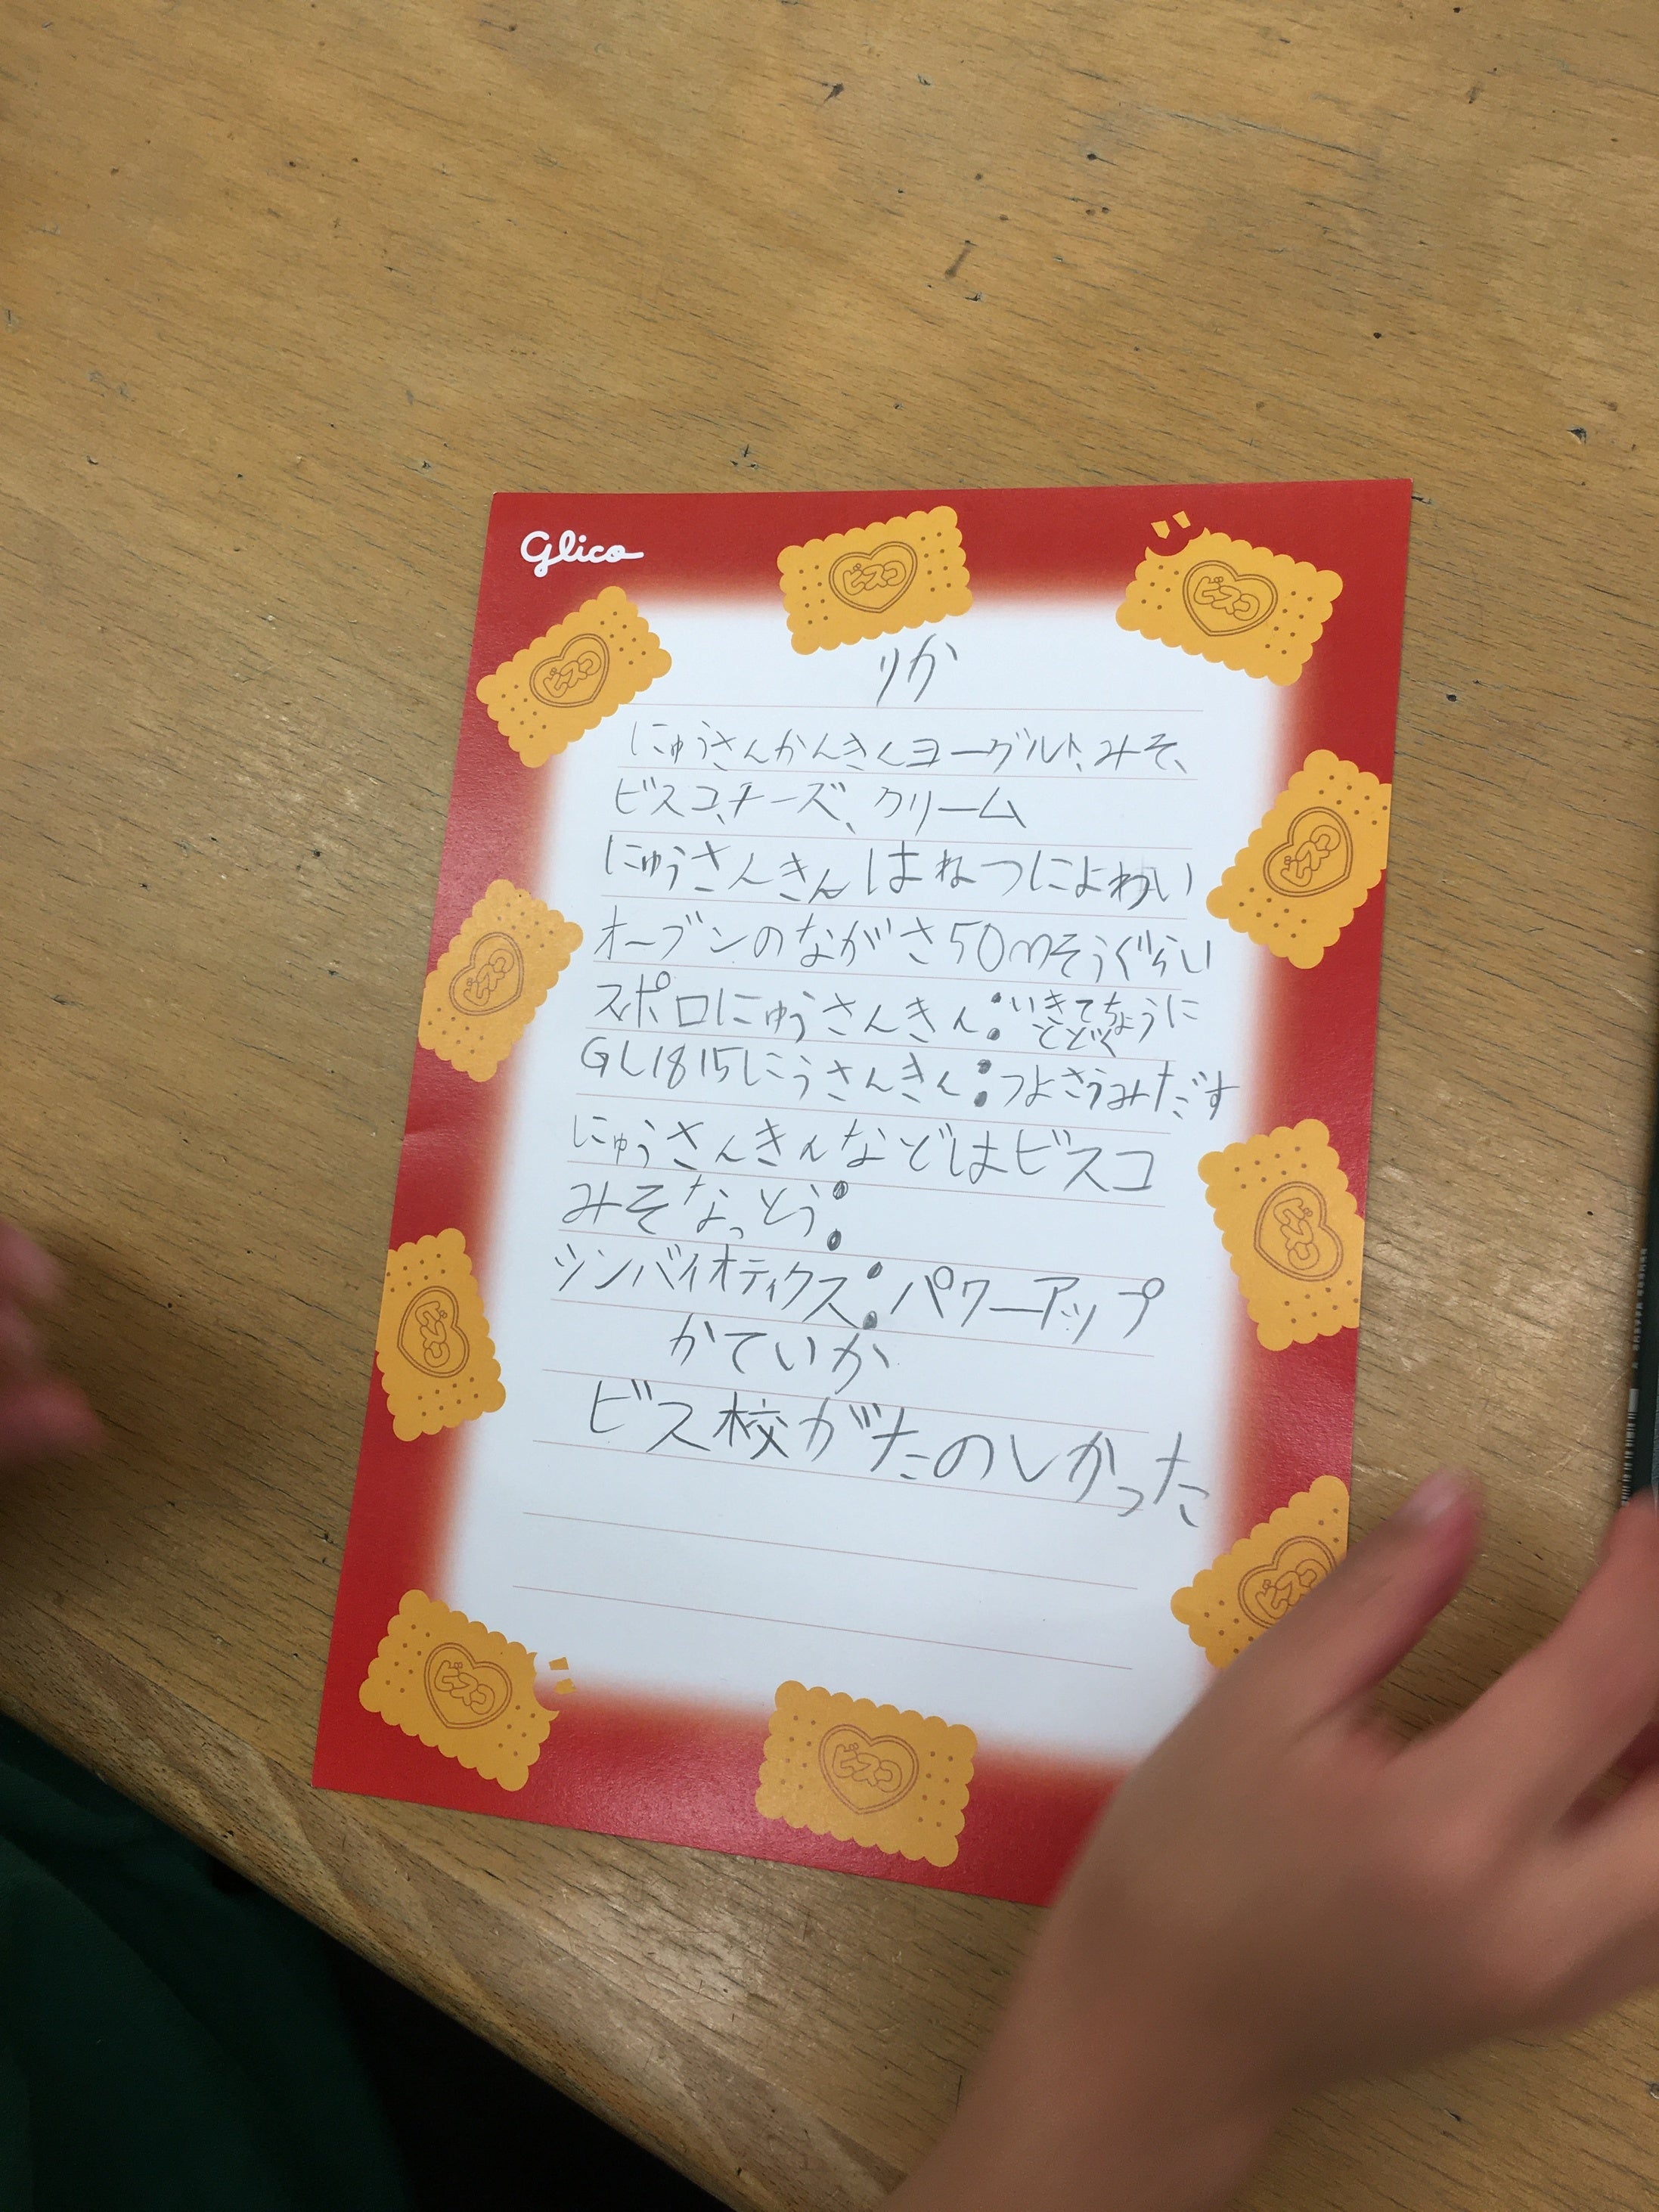 Glico
ビスコ
ビスコ
ビスコ
りか
にゅうさんかんきんヨーグルト、みそ、
ビスコ、チーズ、クリーム
にゅうさんきんはねつによわい
オーブンのながさ50mそうぐらい
スポロにゅうさんきん:いきてちょうに
とどく
GL1815にうさんきん:つよさうみだす
にゅうさんきんなどはビスコ
みそなっとう:
シンバイオティクス:パワーアップ
かていか
ビス校がたのしかった
ビスコ
ビスコ
ビスコ
ビスコ
ビスコ
ビスコ
ビスコ